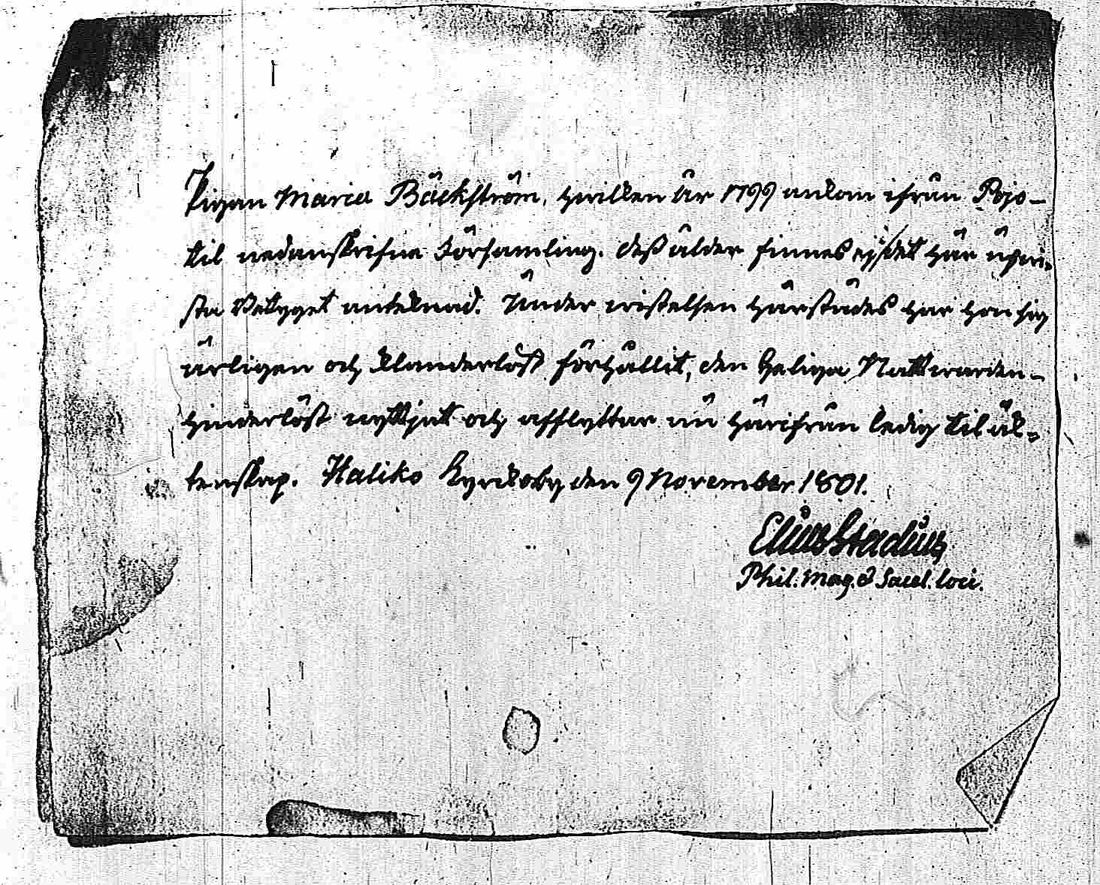 Pigan Maria Bäckström, hwilken år 1799 ankom ifrån Pojo-
til nedanskrifne Församling. dess ålder finnes ej i det här
sta Betyget anteknad. Under wistelsen härstädes har hon sig
ärligen och klanderlöst förhållit, den Heliga Nattwarden-
hinderlöst nyttjat och afflyttar nu härifrån ledig til äk-
tenskap. Haliko Kyrckoby den 9 November 1801.
Elias Stadius
Phil. Mag & Sacel. loci.